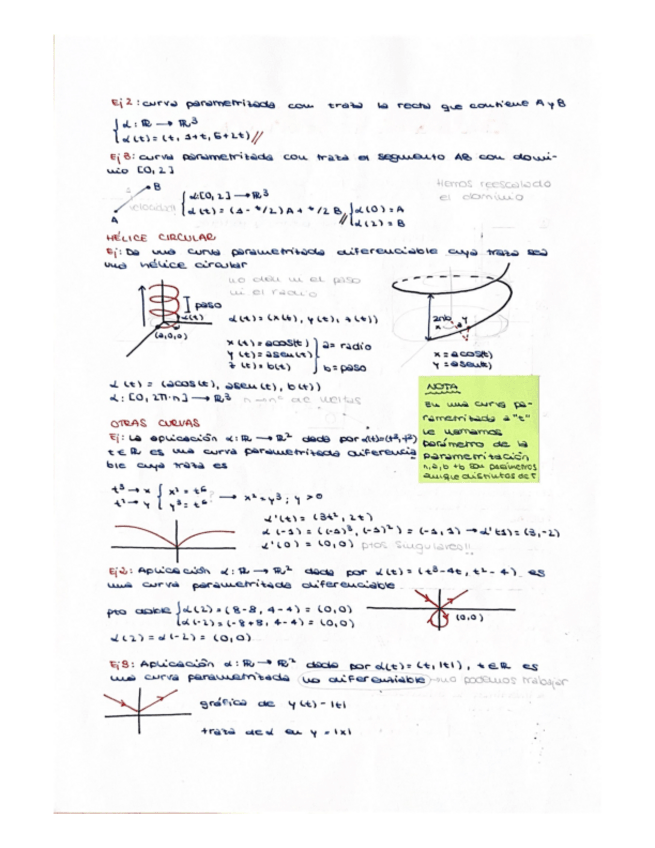 Ej 2: curva parametrizada con traza la recta que contiene A y B
α: ℝ → ℝ³
α(t) = (t, 1+t, 5+2t)//
Ej 3: curva parametrizada con traza el segmento AB con domi-
nio [0,2]
Hemos reescalado
el dominio
A
B
velocidad
α: [0,2] → ℝ³
α(t) = (1 - t/2) A + t/2 B //
α(0) = A
α(2) = B
HÉLICE CIRCULAR
Ej: Da una curva parametrizada diferenciable cuya traza sea
una hélice circular
no den ni el paso
ni el radio
paso
α(t)
(a,0,0)
α(t) = (x(t), y(t), z(t))
x(t) = acos(t)
y(t) = asen(t)
z(t) = b(t)
a = radio
b = paso
2πb
x
y
x = a cos(t)
y = a sen(t)
α(t) = (acos(t), asen(t), b(t))
α: [0, 2π·n] → ℝ³ n → nº de vueltas
NOTA
En una curva pa-
rametrizada a "t"
le llamamos
parámetro de la
parametrización
n,a,b +b son parámetros
aunque distintos de t
OTRAS CURVAS
Ej: La aplicación α: ℝ → ℝ² dada por α(t)=(t³,t²)
t∈ℝ es una curva parametrizada diferencia
ble cuya traza es
t³ → x
t² → y
x² = t⁶
y³ = t⁶
→ x² = y³ ; y > 0
α'(t) = (3t², 2t)
α(-1) = ((-1)³, (-1)²) = (-1, 1) → α'(1) = (3,-2)
α'(0) = (0,0) ptos singulares!!
Ej 2: Aplicación α: ℝ → ℝ² dada por α(t) = (t³-4t, t²-4) es
una curva parametrizada diferenciable
pto doble
α(2) = (8-8, 4-4) = (0,0)
α(-2) = (-8+8, 4-4) = (0,0)
α(2) = α(-2) = (0,0)
(0,0)
Ej 3: Aplicación α: ℝ → ℝ² dada por α(t) = (t, |t|), t∈ℝ es
una curva parametrizada no diferenciable → no podemos trabajar
gráfica de y(t) = |t|
traza de α en y = |x|